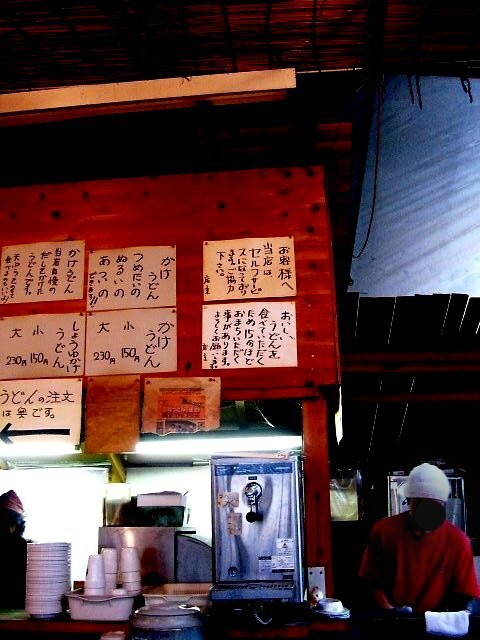 お客様へ
当店は、
セルフサービ
スになっており
ます。ご協力
下さい。
店主
かけうどん
つめたいの
ぬるいの
あついの
できます!!
かけうどん
当店自慢の
だしをかけた
うどんです。
おいしい、
うどんを
食べていただく
ため15分ほど
おまちいただく
事があります。
よろしくお願い
店主
かけうどん
小 150円
大 230円
しょうゆかけうどん
小 150円
大 230円
うどんの注文
は奥です。